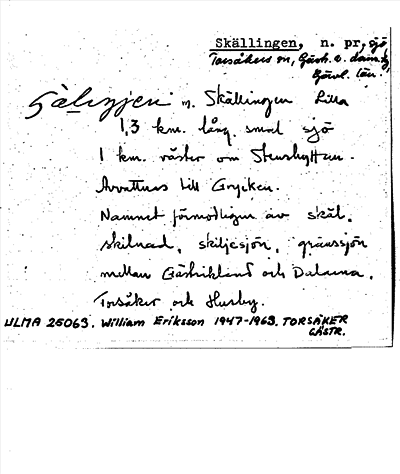 Skällingen, n. pr., sjö,
Torsåkers sn, Gästr. ö. doms.,
Gävl. län.
n. Skällingen Lilla
1,3 km. lång smal sjö
1 km. väster om Stenshyttan.
Avvattnas till Grycken.
Namnet förmodligen av skäl,
skillnad, skiljesjön, gränssjön
mellan Gästrikland och Dalarna,
Torsåker och Husby.
ULMA 25063. William Eriksson 1947-1963. TORSÅKER
GÄSTR.